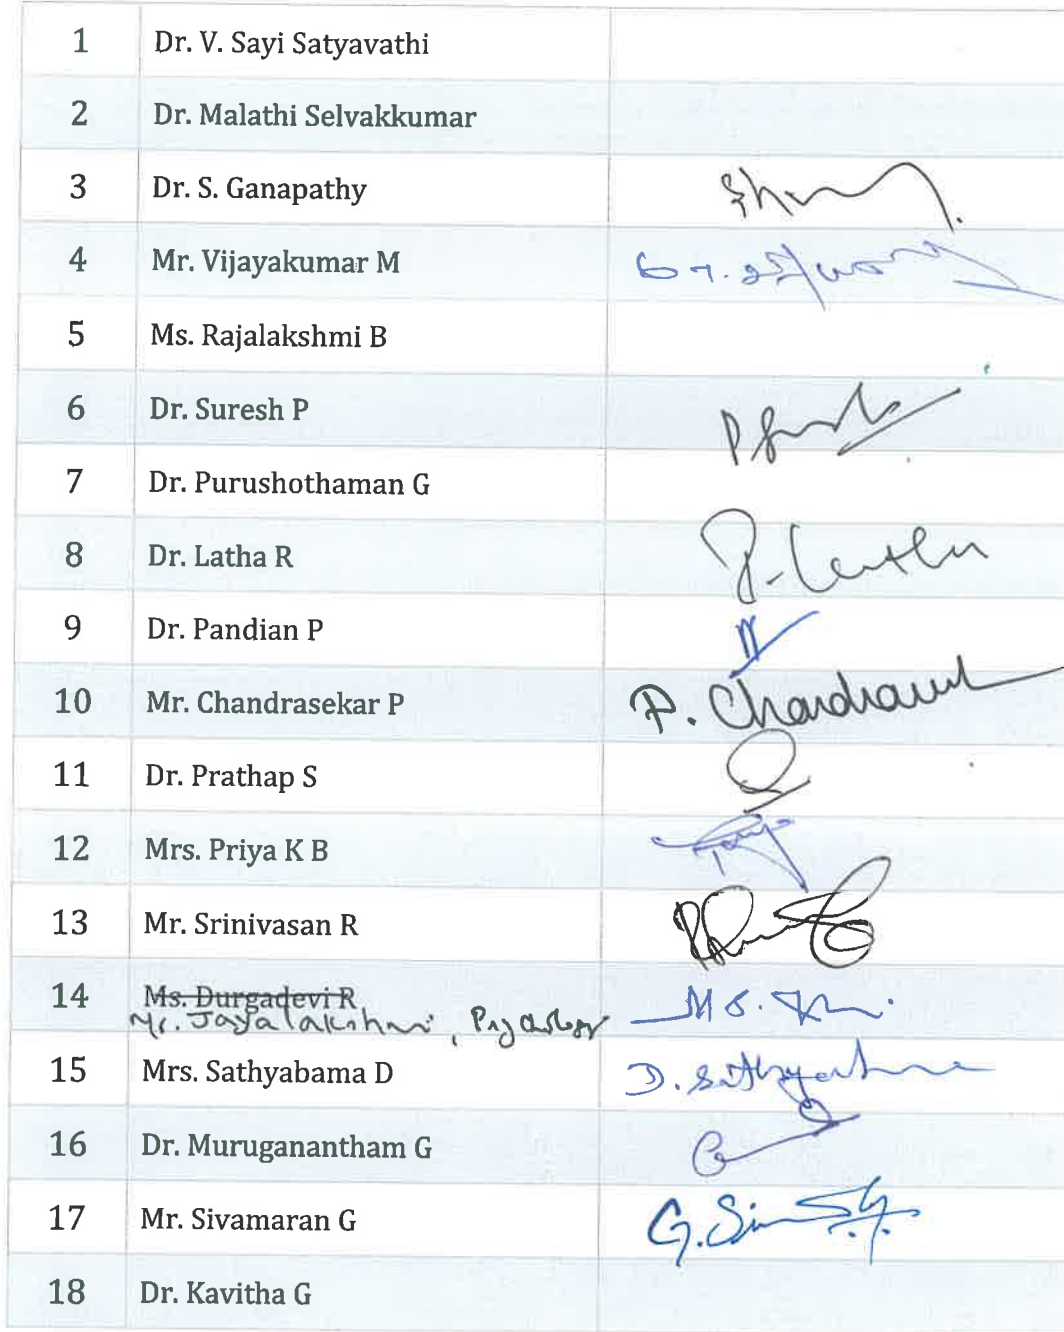 1 Dr. V. Sayi Satyavathi
2 Dr. Malathi Selvakkumar
3 Dr. S. Ganapathy
4 Mr. Vijayakumar M
5 Ms. Rajalakshmi B
6 Dr. Suresh P
7 Dr. Purushothaman G
8 Dr. Latha R R. Latha
9 Dr. Pandian P
10 Mr. Chandrasekar P P. Chandrasek
11 Dr. Prathap S
12 Mrs. Priya K B
13 Mr. Srinivasan R
14 Ms. Durgadevi R
Jayalakshmi, Psychology
15 Mrs. Sathyabama D D. Sathyabama
16 Dr. Muruganantham G
17 Mr. Sivamaran G
18 Dr. Kavitha G